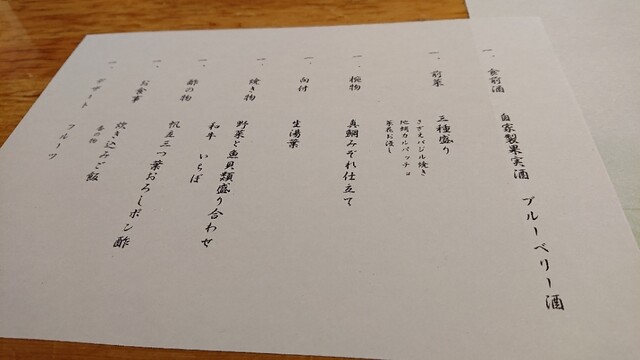 一、食前酒 自家製果実酒 ブルーベリー酒
一、前菜 三種盛り
さざえバジル焼き
地蛸カルパッチョ
菜花お浸し
一、椀物 真鯛みぞれ仕立て
一、向付 生湯葉
一、焼き物 野菜と魚貝類盛り合わせ
和牛 いちぼ
一、酢の物 帆立三つ葉おろしポン酢
一、お食事 炊き込みご飯
香の物
一、デザート フルーツ